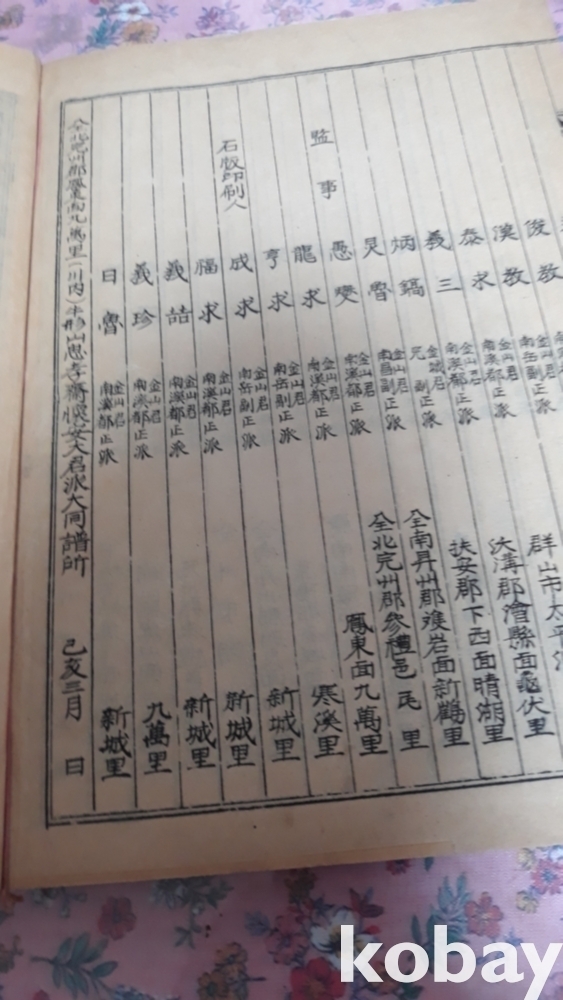 俊教
漢教 金山君 南岳副正派
泰求 金山君 南溪都正派 群山市太平
義三 金山君 南溪都正派 沃溝郡澮縣面龜伏里
炳鎬 金城君 副正派 扶安郡下西面晴湖里
炅魯 金山君 南昌副正派 全南昇州郡雙岩面新鶴里
監事 愚燮 金山君 南溪都正派 全北完州郡參禮邑瓦里
龍求 金山君 南溪都正派 鳳東面九萬里
亨求 金山君 南岳副正派 寒溪里
石版印刷人 成求 金山君 南岳副正派 新城里
福求 金山君 南溪都正派 新城里
義喆 金山君 南溪都正派 新城里
義珍 金山君 南溪都正派 九萬里
日魯 金山君 南溪都正派 新城里
全北完州郡鳳東面九萬里(川內)牛形山思孝齋懷安大君派大同譜所 己亥三月 日
kobay